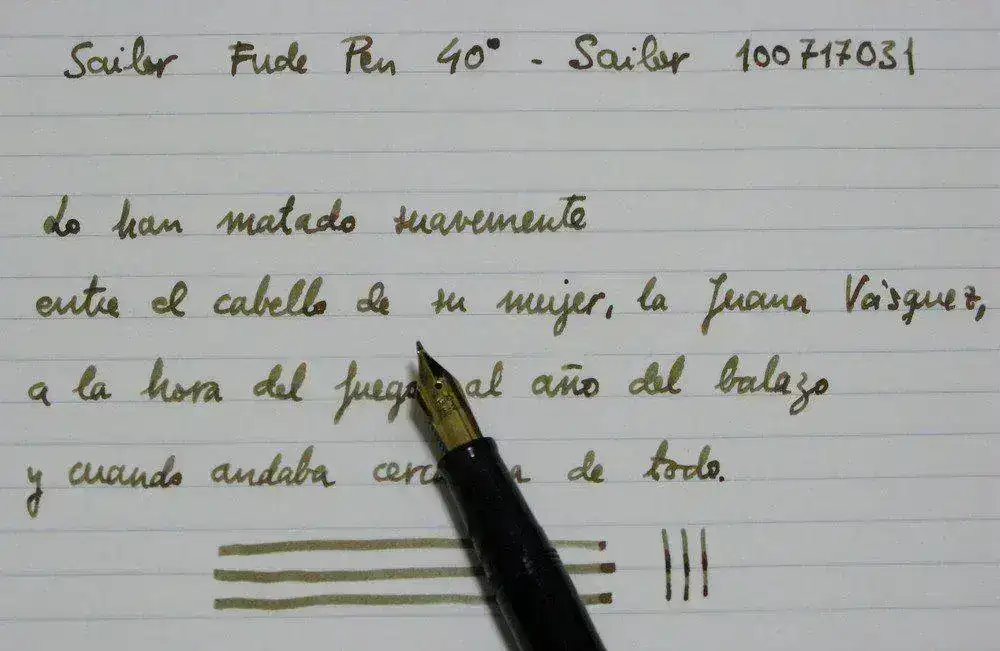 Sailor Fude Pen 40° - Sailor 100717031
Lo han matado suavemente
entre el cabello de su mujer, la Juana Vásquez,
a la hora del fuego al año del balazo
y cuando andaba de todo.